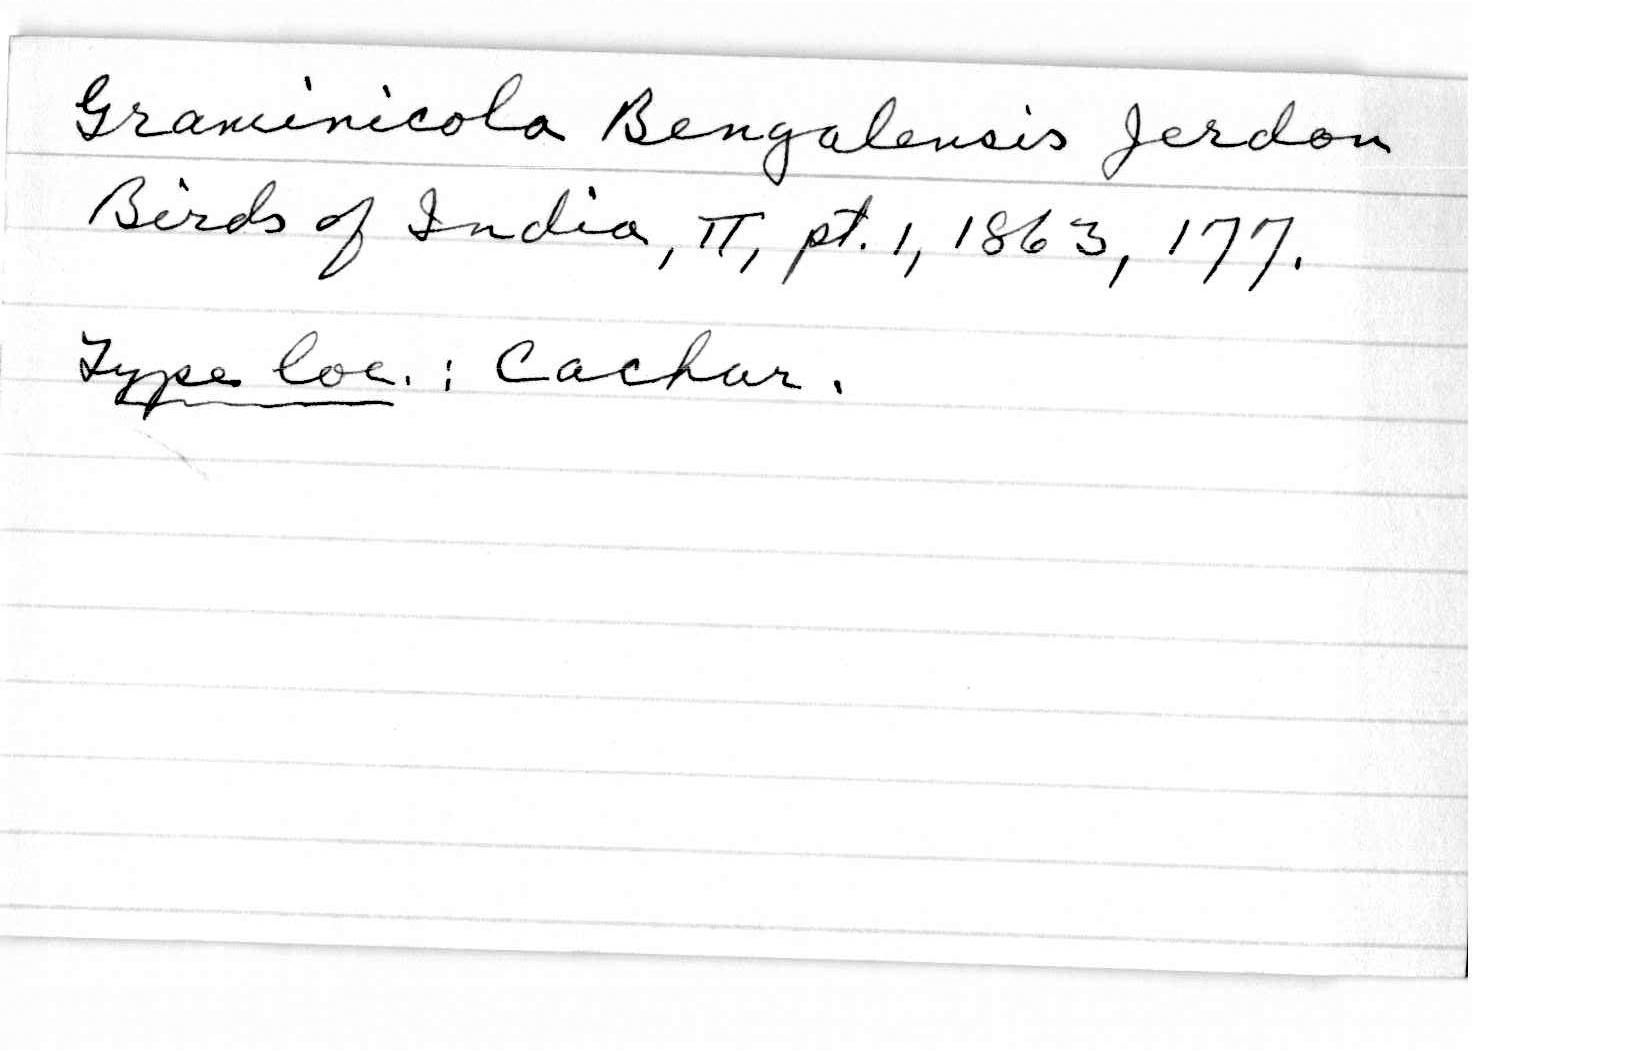 Graminicola Bengalensis Jerdon
Birds of India, II, pt. 1, 1863, 177.
Type loc. : Cachar.